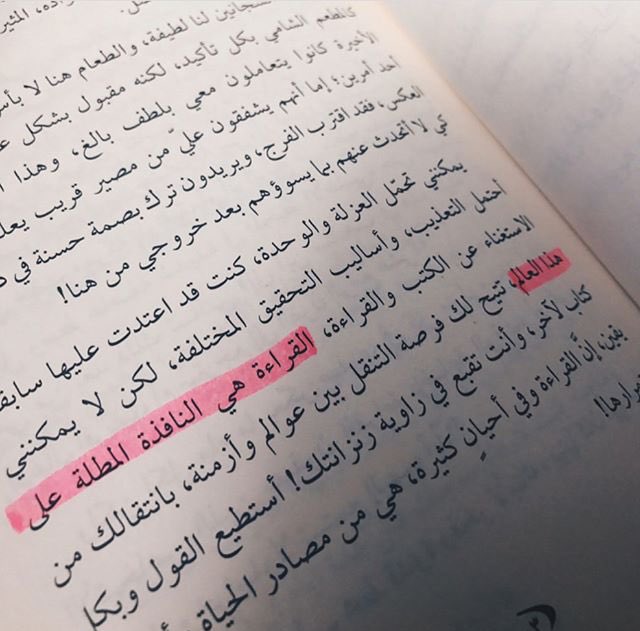 لنا لطيفة، والطعام هنا لا بأس
كالمطعم الشامي بكل تأكيد، لكنه مقبول بشكل
الأخيرة كانوا يتعاملون معي بلطف بالغ، وهذا
أحد أمرين؛ إما أنهم يشفقون عليّ من مصير قريب
العكس، فقد اقترب الفرج، ويريدون ترك بصمة حسنة في
كي لا أتحدث عنهم بما يسوؤهم بعد خروجي من هنا!
يمكنني تحمّل العزلة والوحدة، كنت قد اعتدت عليها
أحتمل التعذيب، وأساليب التحقيق المختلفة، لكن لا يمكنني
الاستغناء عن الكتب والقراءة، القراءة هي النافذة المطلة على
هذا العالم، تتيح لك فرصة التنقل بين عوالم وأزمنة، بانتقالك من
كتاب لآخر، وأنت تقبع في زاوية زنزانتك! أستطيع القول وبكل
يقين، إنّ القراءة وفي أحيانٍ كثيرة، هي من مصادر الحياة